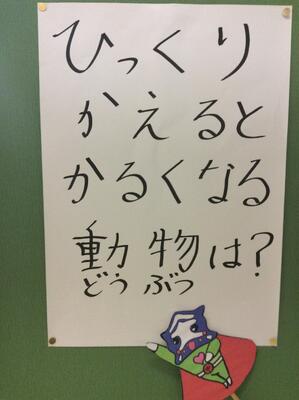 ひっくり
かえると
かるくなる
動物は?
どうぶつ